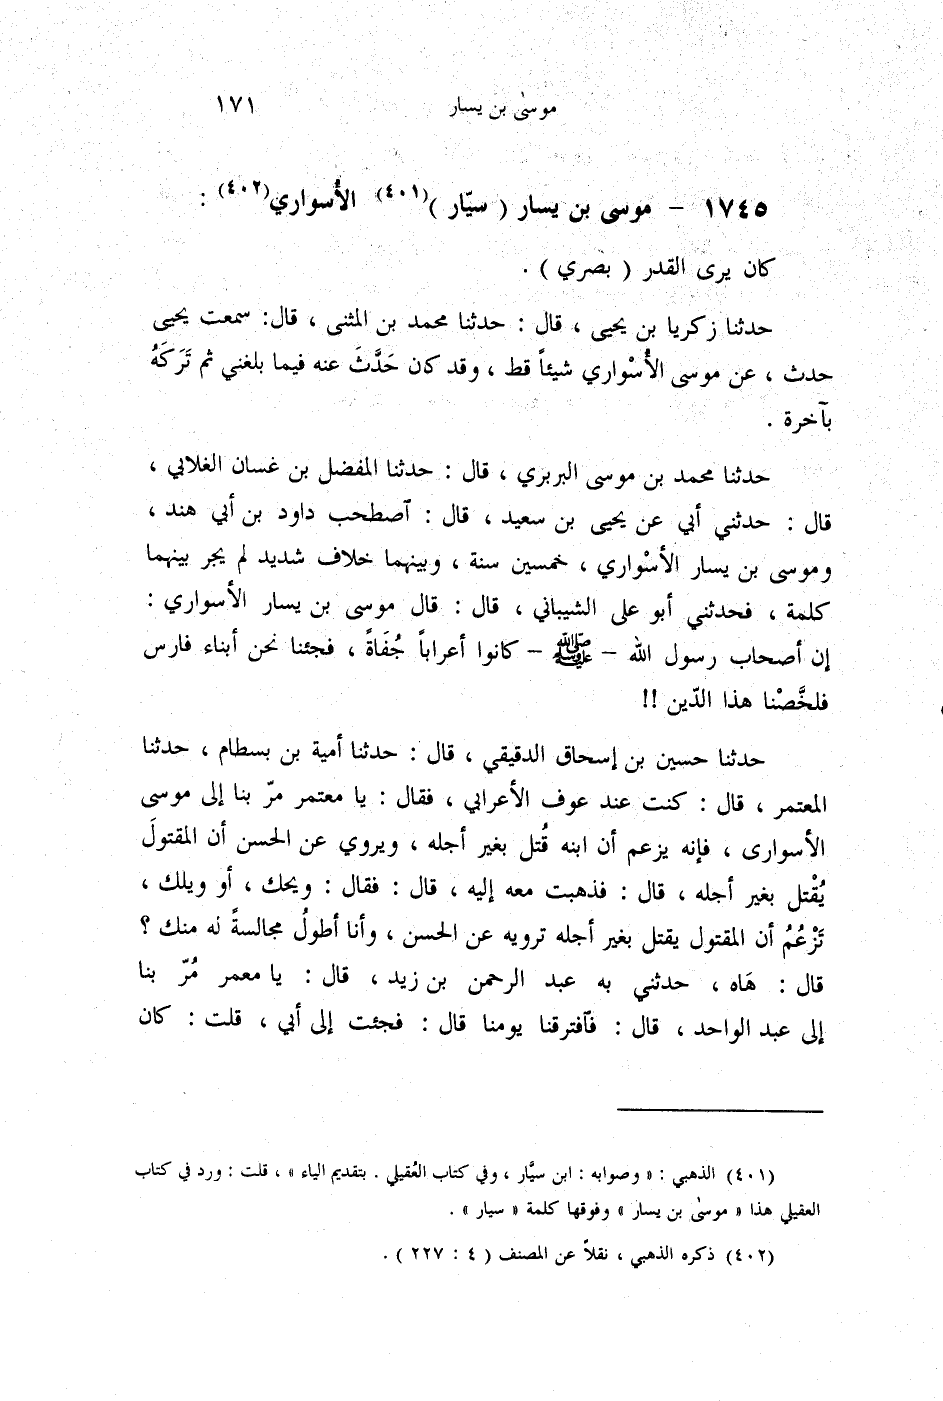 موسىٰ بن يسار ١٧١
١٧٤٥ - موسى بن يسار ( سيّار )(٤٠١) الأُسواري(٤٠٢) :
كان يرى القدر ( بصري ) .
حدثنا زكريا بن يحيى ، قال : حدثنا محمد بن المثنى ، قال: سمعت يحيى
حدث ، عن موسى الأُسْواري شيئاً قط ، وقد كان حَدَّثَ عنه فيما بلغني ثم تَرَكَهُ
بآخرة .
حدثنا محمد بن موسى البربري ، قال : حدثنا المفضل بن غسان الغلابي ،
قال : حدثني أبي عن يحيى بن سعيد ، قال : آصطحب داود بن أبي هند ،
وموسى بن يسار الأسْواري ، خمسين سنة ، وبينهما خلاف شديد لم يجر بينهما
كلمة ، فحدثني أبو على الشيباني ، قال : قال موسى بن يسار الأسواري :
إن أصحاب رسول الله - ﷺ - كانوا أعراباً جُفَاةً ، فجئنا نحن أبناء فارس
فلخَّصْنا هذا الدّين !!
حدثنا حسين بن إسحاق الدقيقي ، قال : حدثنا أمية بن بسطام ، حدثنا
المعتمر ، قال : كنت عند عوف الأعرابي ، فقال : يا معتمر مرّ بنا إلى موسى
الأسوارى ، فإنه يزعم أن ابنه قُتل بغير أجله ، ويروي عن الحسن أن المقتولَ
يُقْتل بغير أجله ، قال : فذهبت معه إليه ، قال : فقال : ويحك ، أو ويلك ،
تَزْعُمُ أن المقتول يقتل بغير أجله ترويه عن الحسن ، وأنا أطولُ مجالسةً له منك ؟
قال : هَاه ، حدثني به عبد الرحمن بن زيد ، قال : يا معمر مُرّ بنا
إلى عبد الواحد ، قال : فآفترقنا يومنا قال : فجئت إلى أبي ، قلت : كان
(٤٠١) الذهبي : « وصوابه : ابن سيَّار ، وفي كتاب العُقيلي . بتقديم الياء » ، قلت : ورد في كتاب
العقيلي هذا « موسىٰ بن يسار » وفوقها كلمة « سيار » .
(٤٠٢) ذكره الذهبي ، نقلاً عن المصنف ( ٤ : ٢٢٧ ) .